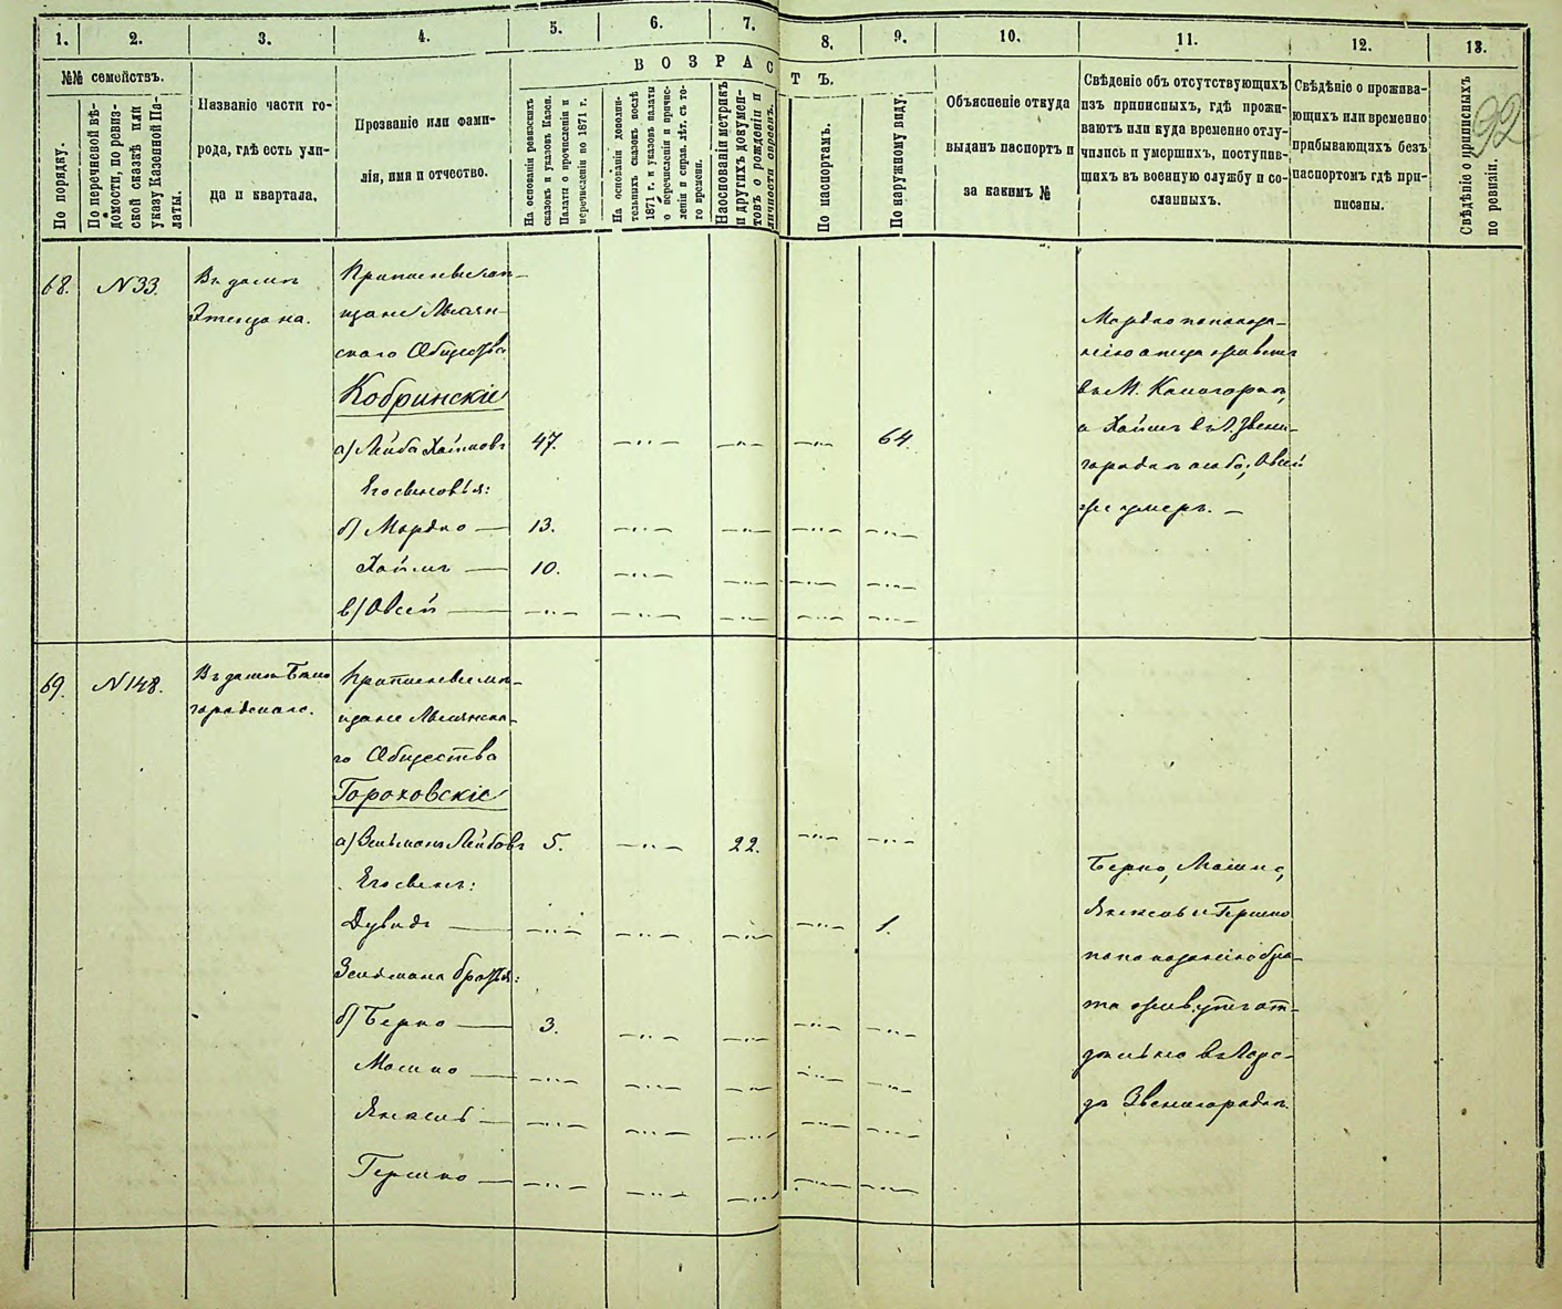 1. 2. 3. 4. 5. 6. 7. 8. 9. 10. 11. 12. 13.
В О З Р А С Т Ъ.
№№ семействъ.
По порядку.
По перечневой вѣ-
домости, по ревиз-
ской сказкѣ или
указу Казенной Па-
латы.
Названіе части го-
рода, гдѣ есть ули-
ца и квартала.
Прозваніе или фами-
лія, имя и отчество.
На основаніи ревизскихъ
сказокъ и указовъ Казен.
Палаты о причисленіи и
перечисленіи по 1871 г.
На основаніи дополни-
тельныхъ сказокъ послѣ
1871 г. и указовъ палаты
о перечисленіи и причис-
леніи и справ. лѣт. съ то-
го времени.
Наоснованіи метрикъ
и другихъ докумен-
товъ о рожденіи и
личности евреевъ.
По паспортамъ.
По наружному виду.
Объясненіе откуда
выданъ паспортъ и
за какимъ №
Свѣденіе объ отсутствующихъ
изъ приписныхъ, гдѣ прожи-
ваютъ или куда временно отлу-
чились и умершихъ, поступив-
щихъ въ военную службу и со-
сланныхъ.
Свѣдѣніе о прожива-
ющихъ или временно
прибывающихъ безъ
паспортомъ гдѣ при-
писаны.
Свѣдѣніе о приписныхъ
по ревизіи.
92
68. №33. Въ домѣ
Приписные мѣ-
щане Лысян-
скаго Общества
Кобринскіе
а) Лейба Хаимовъ 47. —..— —..— —..— 64.
Его сыновья:
б) Мордко — 13. —..— —..— —..— —..—
Хаимъ — 10. —..— —..— —..— —..—
в) Овсей — —..— —..— —..— —..— —..—
Мордко по показа-
нію отца живетъ
въ М.
а Хаимъ въ г. Звени-
городкѣ особо, Овсей
же умеръ. —
69. №148. Въ домѣ Бѣло
городскаго.
Приписные мѣ-
щане Лысянска-
го Общества
Гороховскіе
а) Зельманъ Лейбовъ 5. —..— 22. —..— —..—
Его сынъ:
Дувидъ — —..— —..— —..— —..— 1.
Зельмана братья:
б) Берко — 3. —..— —..— —..— —..—
Мошко — —..— —..— —..— —..— —..—
Янкель — —..— —..— —..— —..— —..—
Гершко — —..— —..— —..— —..— —..—
Берко, Мошко,
Янкель и Гершко
по показанію бра-
та живутъ от-
дѣльно въ Горо-
дѣ Звенигородкѣ.